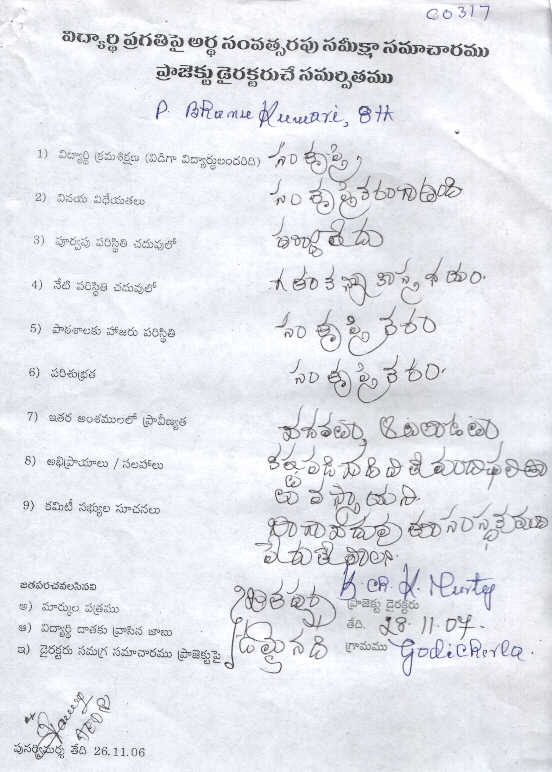 CO317
విద్యార్థి ప్రగతిపై అర్ధ సంవత్సరపు సమీక్షా సమాచారము
ప్రాజెక్టు డైరక్టరుచే సమర్పితము
P. BHanu Kumari, 8th
1) విద్యార్థి క్రమశిక్షణ (విడిగా విద్యార్థులందరిది) సంతృప్తి
2) వినయ విధేయతలు సంతృప్తికరంగా ఉంది
3) పూర్వపు పరిస్థితి చదువులో
4) నేటి పరిస్థితి చదువులో గతంకన్నా కాస్త నయం.
5) పాఠశాలకు హాజరు పరిస్థితి సంతృప్తికరం
6) పరిశుభ్రత సంతృప్తికరం.
7) ఇతర అంశములలో ప్రావీణ్యత
8) అభిప్రాయాలు / సలహాలు కష్టపడి చదివితే మంచి ఫలితా
లు వస్తాయని
9) కమిటీ సభ్యుల సూచనలు బాగా చదువు ఈ సంస్థకు మంచి
పేరు తేవాలి.
జతపరచవలసినవి
K Ch. K. Murty
అ) మార్కుల పత్రము ప్రాజెక్టు డైరక్టరు
ఆ) విద్యార్థి దాతకు వ్రాసిన జాబు తేది. 28.11.07.
ఇ) డైరక్టరు సమగ్ర సమాచారము ప్రాజెక్టుపై గ్రామము Godicherla.
జతపర్చ
బడినది
పునర్విమర్శ తేది 26.11.06